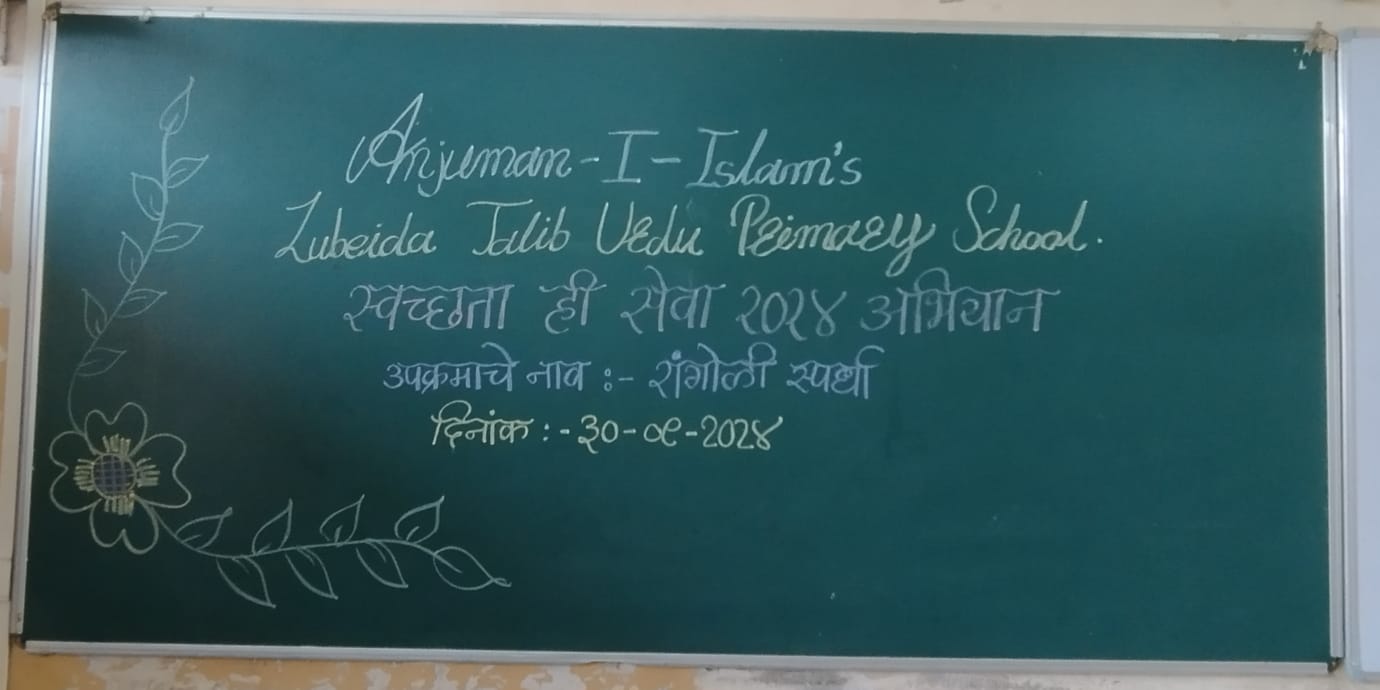 Anjuman-I-Islam's
Zubeida Talib Urdu Primary School.
स्वच्छता ही सेवा २०२४ अभियान
उपक्रमाचे नाव :- रांगोळी स्पर्धा
दिनांक :- ३०-०९-२०२४